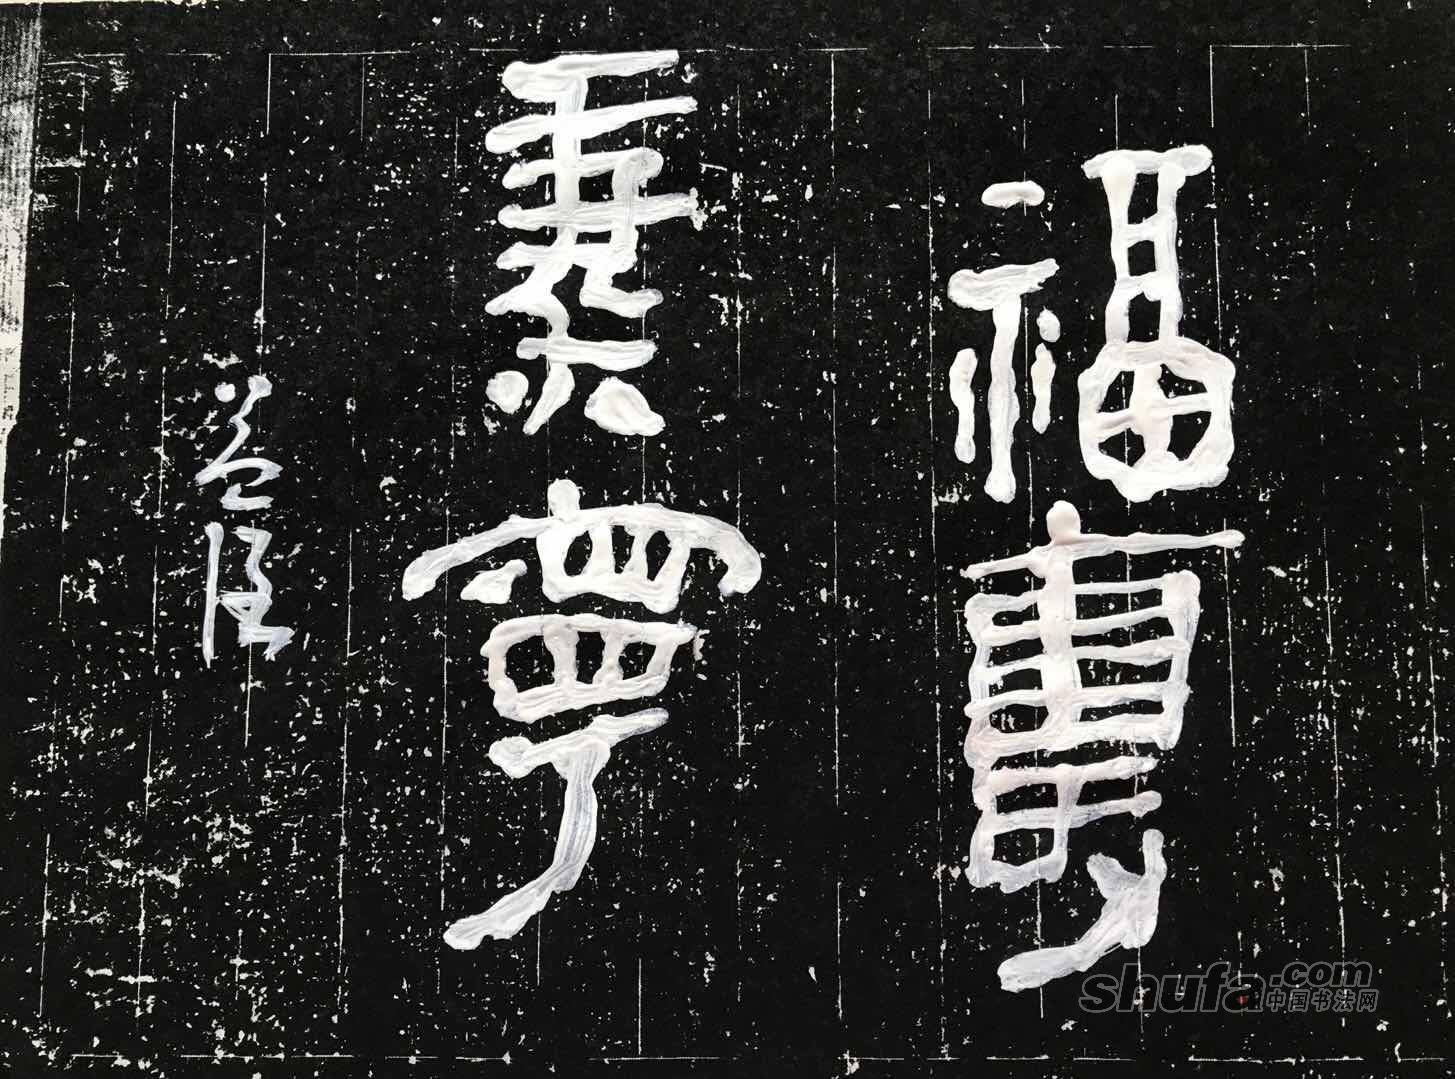 福壽
康寧
shufa.com
中国书法网